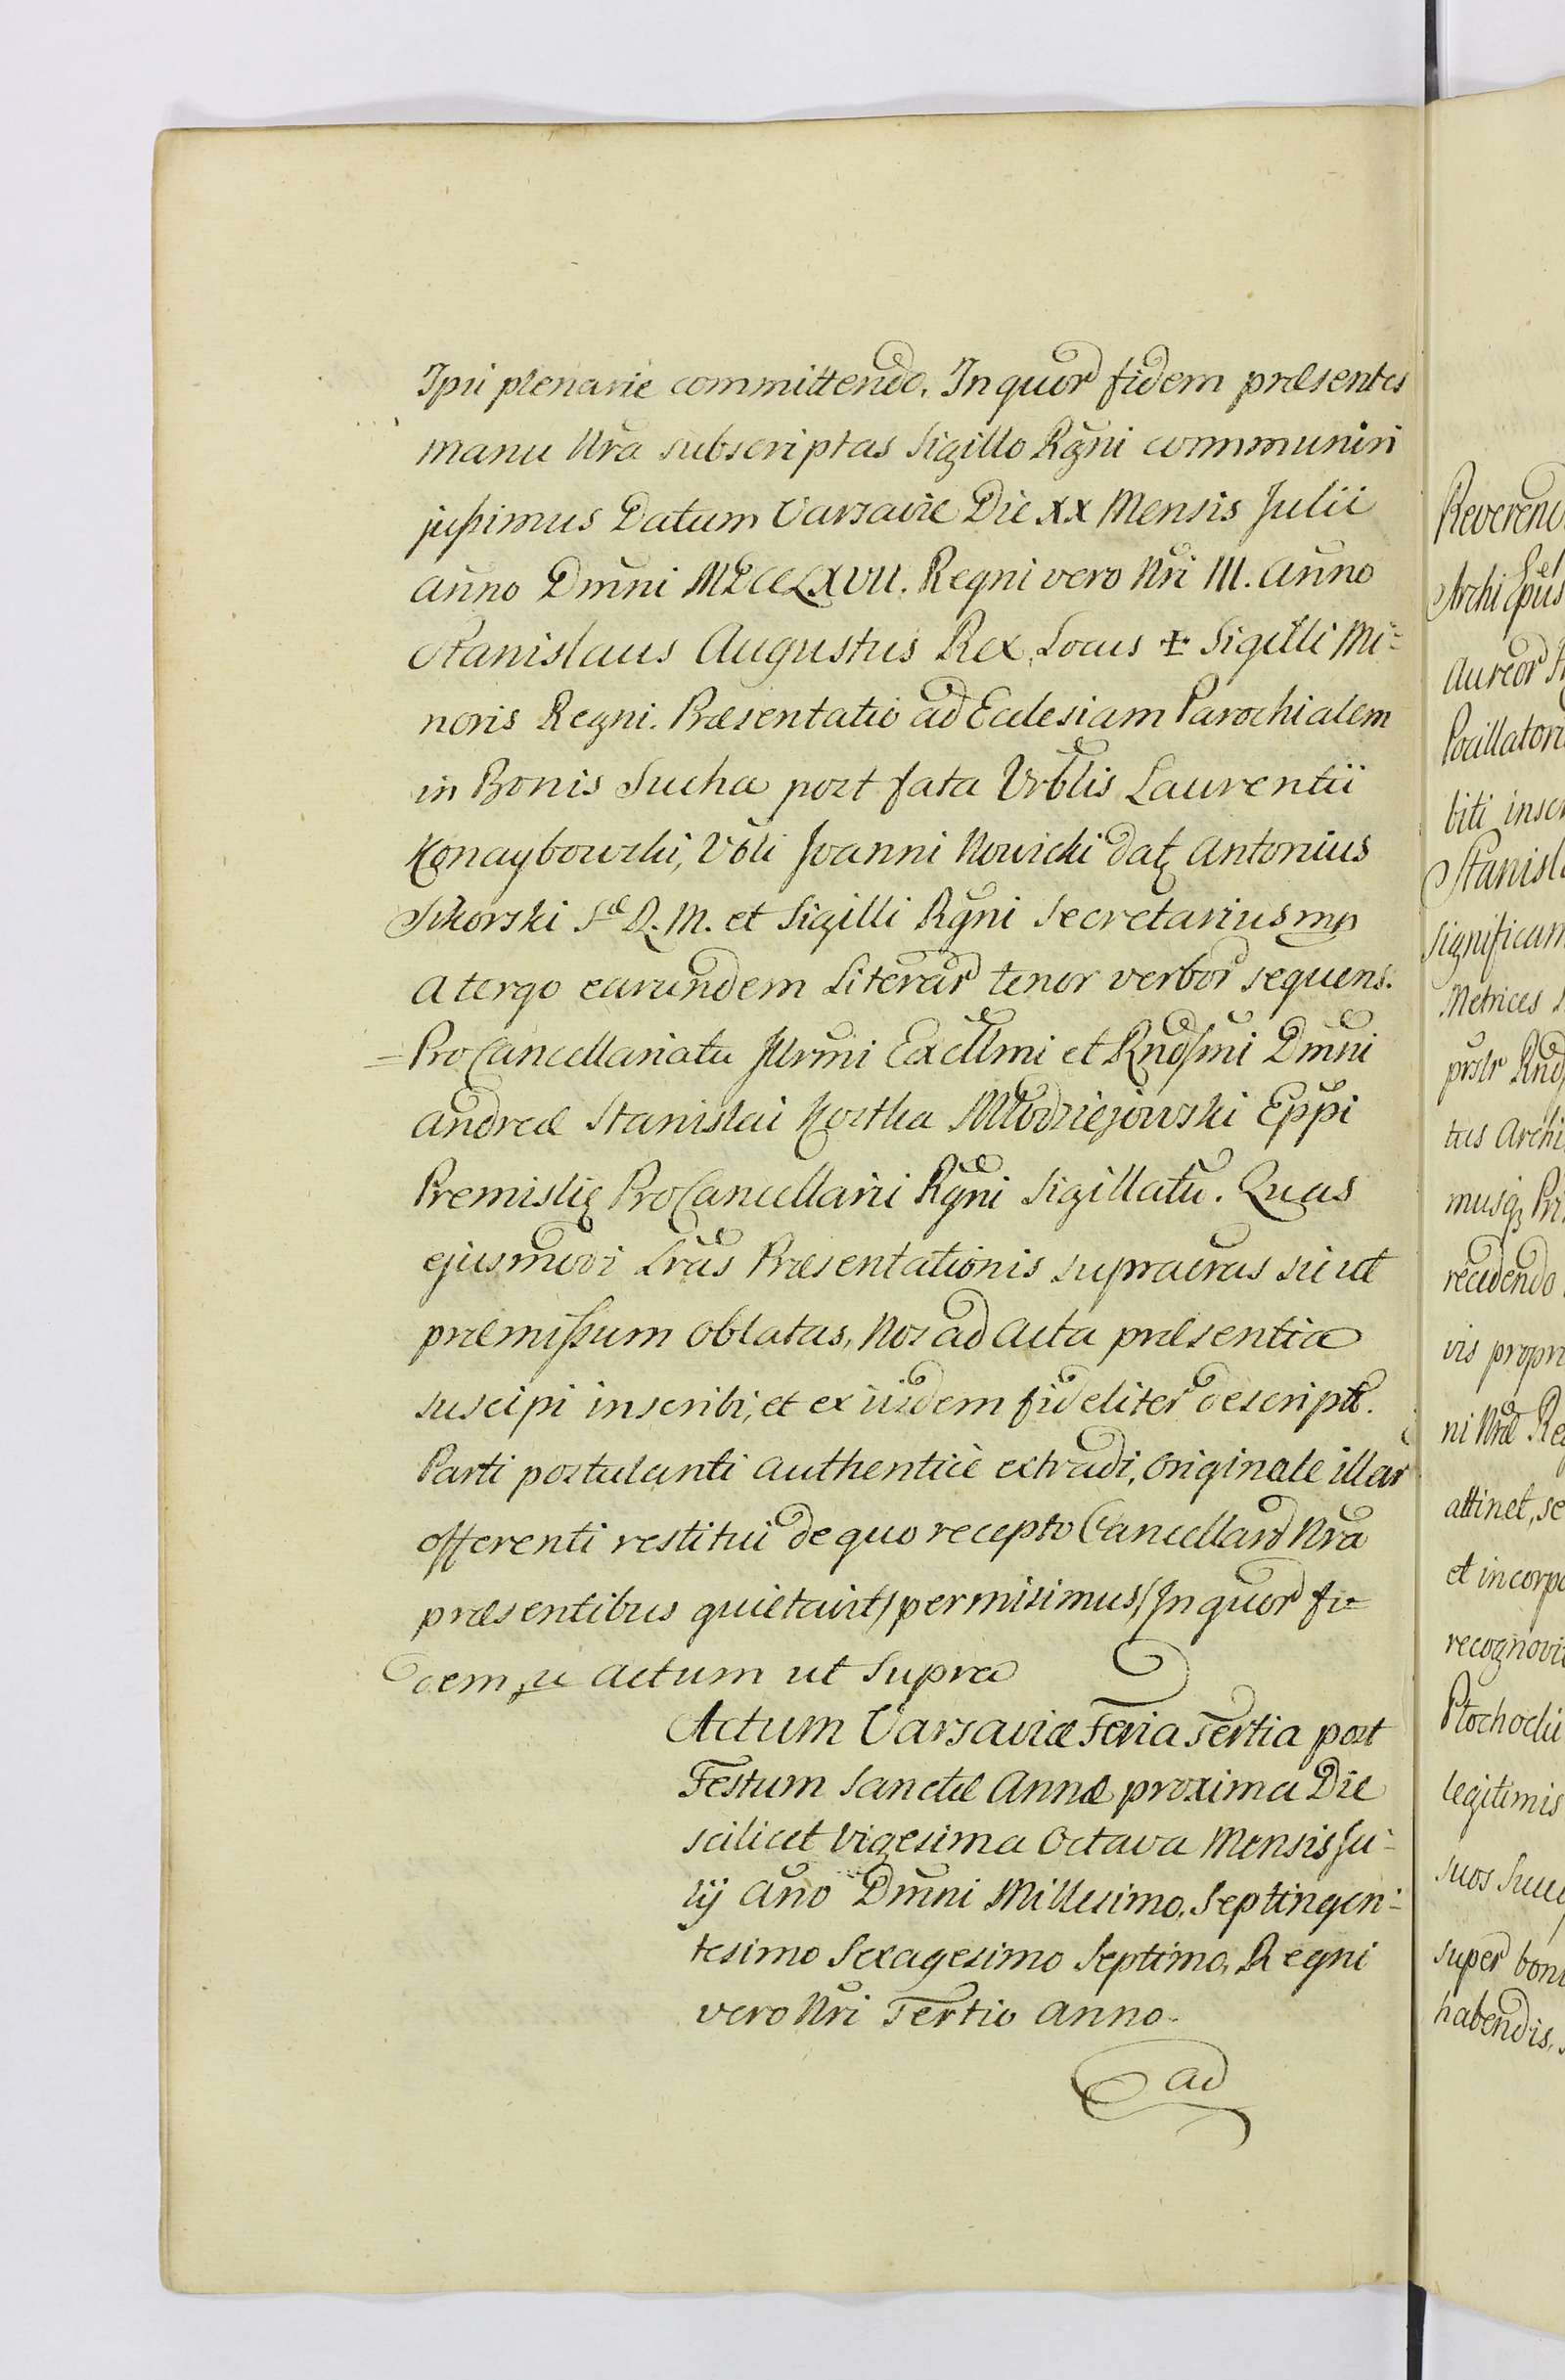 Ipsi plenarie committendo. In quor fidem præsentes
manu Nra subscriptas Sigillo Rgni communiri
jussimus Datum Varsaviæ Die XX Mensis Julii
Anno Dmni MDCCLXVII. Regni vero Nri III. Anno
Stanislaus Augustus Rex, Locus ✠ Sigilli Mi=
noris Regni. Præsentatio ad Ecclesiam Parochialem
in Bonis Sucha post fata Vrblis Laurentii
Vbli Joanni Nowicki datę Antonius
Sikorski Sæ R. M. et Sigilli Rgni Secretarius mp
A tergo earundem Literar tenor verbor sequens.
=ProCancellariatu Jllrmi Excllmi et Rndsmi Dmni
Andreæ Stanislai Kostka Młodziejowski Eppi
Premislię ProCancellarii Rgni Sigillatu. Quas
ejusmodi Lras Præsentationis supraeras sic ut
præmissum oblatas, Nos ad Acta præsentia
suscipi inscribi, et ex iisdem fideliter descript.
Parti postulanti authenticè extradi, Originale illar
offerenti restitui de quo recepto Cancellard Nra
præsentibus quietavit, permisimus, In quor fi=
dem &c Actum ut Supra
Actum Varsaviæ Feria Tertia post
Festum Sanctæ Annæ proxima Die
scilicet Vigesima Octava Mensis Ju=
lij Ano Dmni Millesimo, Septingen=
tesimo Sexagesimo Septimo, Regni
vero Nri Tertio Anno.
ad
Reveren
Archi Epus
Aureor
Pocillator
biti inscr
Stanisl
significam
Metrices
prslr Rnd
tus Archi
musqз Pri
recedendo
vis propri
ni Nræ Re
attinet, se
et incorp
recognovi
Ptochodii
legitimis
suos Succ
super boni
habendis,